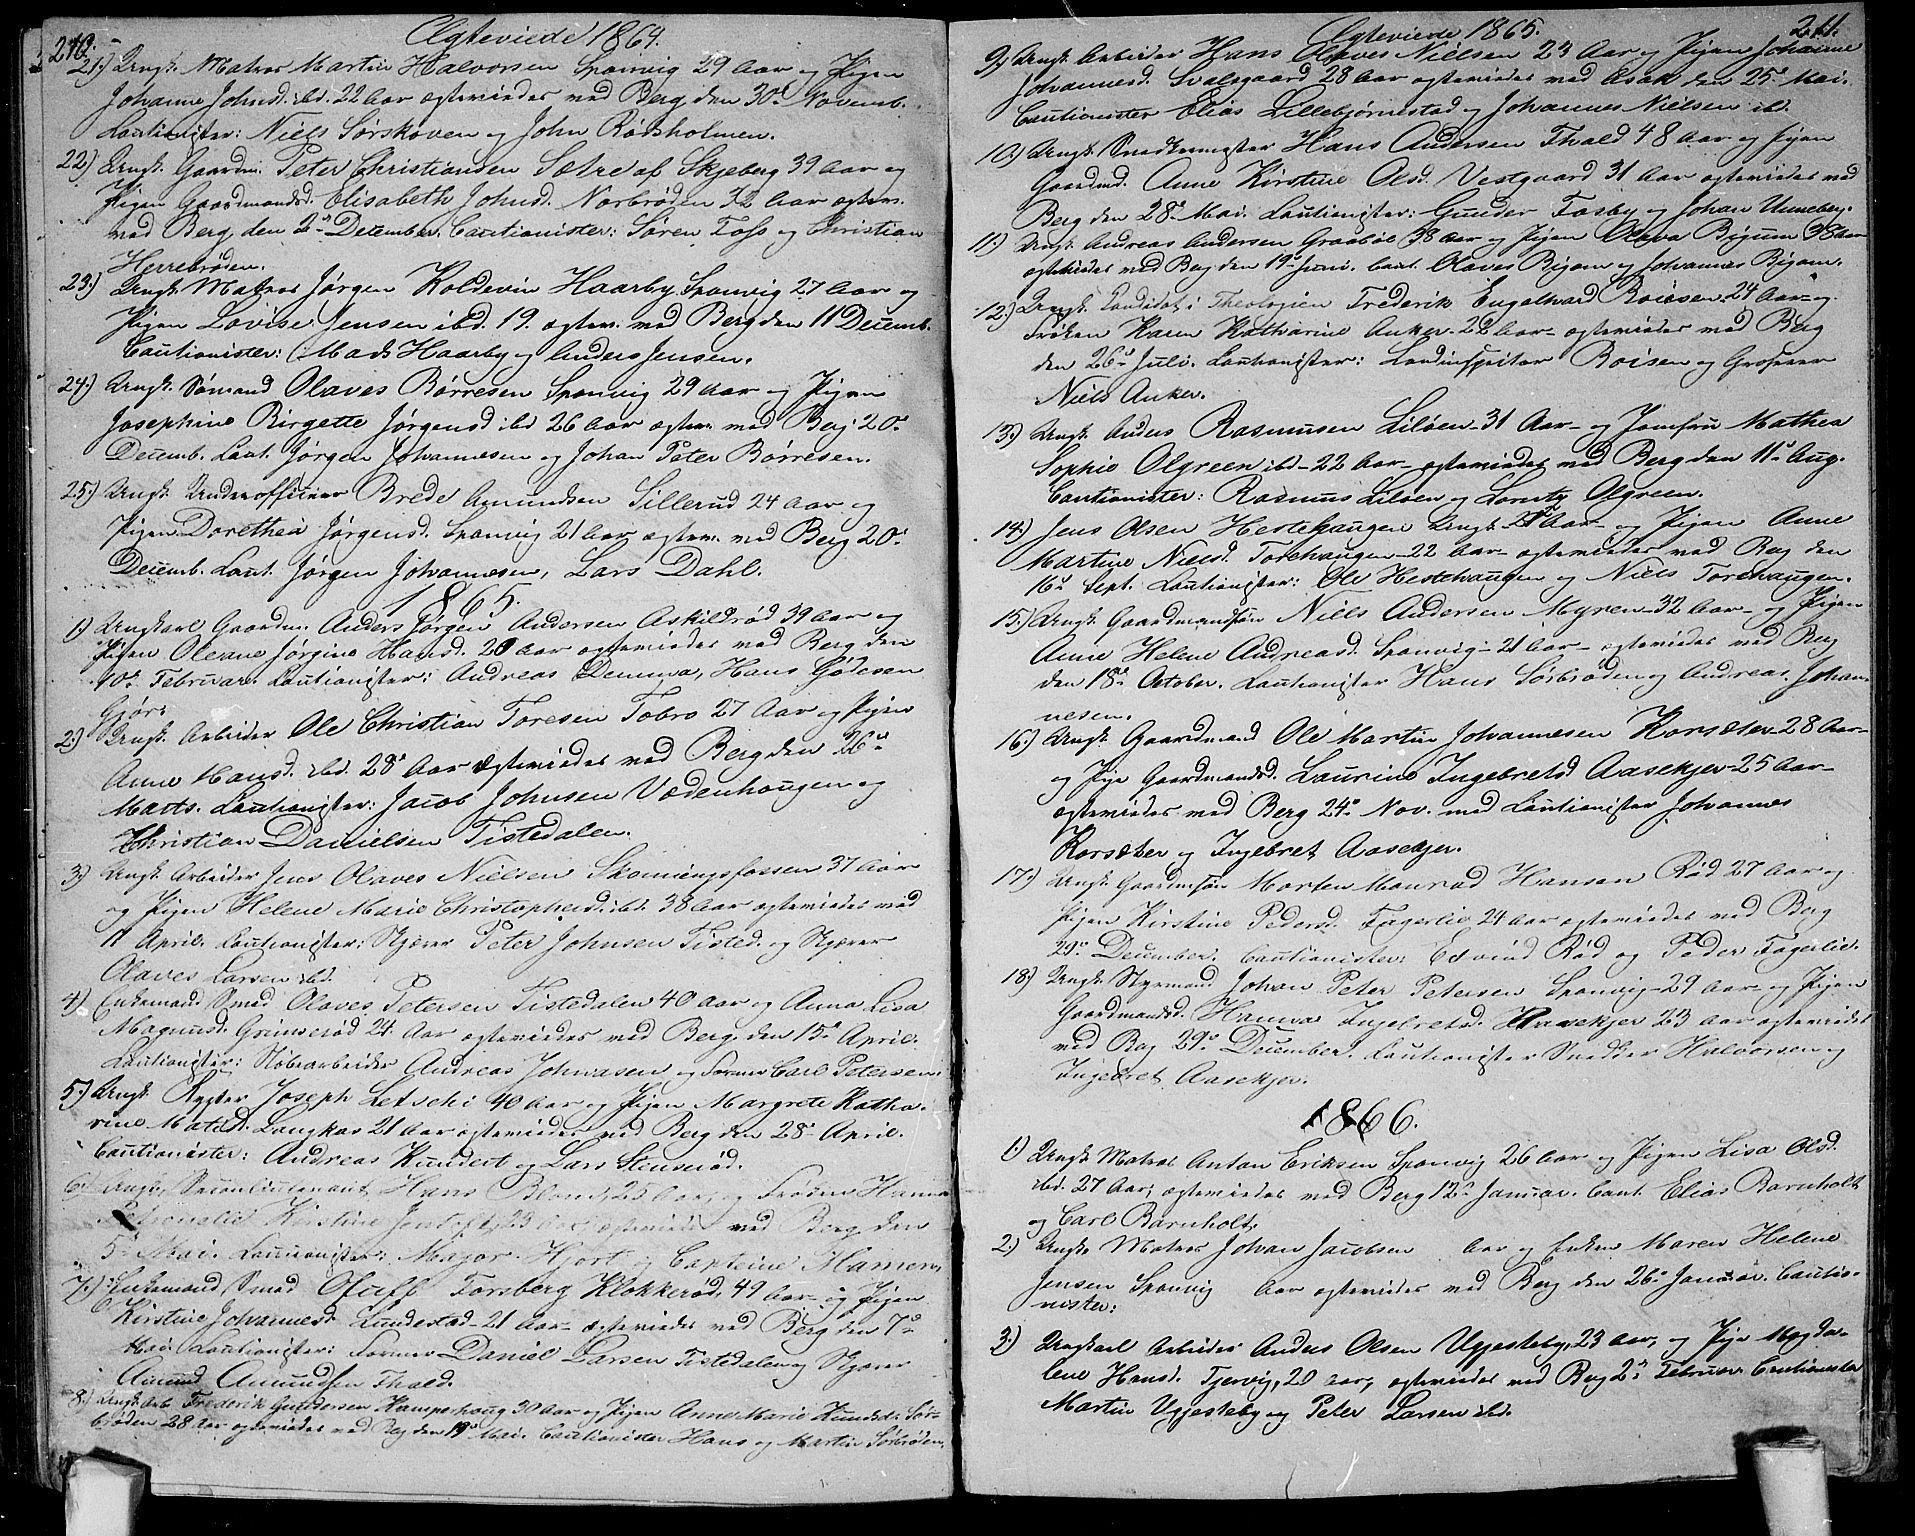 210.
Ægteviede 1864.
21.) Ungk. Matros Martin Halvorsen Sponvig 29 Aar og Pigen
Johanne Johnsd. ibd. 22 Aar ægteviedes ved Berg den 30te Novemb.
Cautionister: Niels Sørskoven og John Rødsholmen.
22.) Ungk. Gaardm. Peter Christiansen Sætre af Skjeberg 39 Aar og
Pigen Gaardmandsd. Elisabeth Johnsd. Norbrøden 32 Aar ægtev.
ved Berg den 2den December. Cautionister: Søren Foss og Christian
Herrebrøden.
23.) Ungk. Matros Jørgen Koldevin Haarby Sponvig 27 Aar og
Pigen Lovise Jensen ibd. 19. ægtev. ved Berg den 11 Decemb.
Cautionister: Mads Haarby og Anders Jensen.
24.) Ungk. Sømand Olaves Børresen Sponvig 29 Aar og Pigen
Josephine Birgette Jørgensd ibd 26 Aar ægtev. ved Berg 20de
Decemb. Caut. Jørgen Johannesen og Johan Peter Børresen.
25.) Ungk. Underofficeer Brede Amundsen Sillerud 24 Aar og
Pigen Dorethea Jørgensd. Sponvig 21 Aar ægtev. ved Berg 20de
Decemb. Caut. Jørgen Johannesen, Lars Dahl.
1865.
1.) Ungkarl Gaardm. Anders Jørgen Andersen Askildrød 39 Aar og
Pigen Oleane Jørgine Hansd. 20 Aar ægteviedes ved Berg den
10de Februar. Cautionister: Andreas Demma, Hans
2.) Ungk. Arbeider Ole Christian Toresen Tobro 27 Aar og Pigen
Anne Hansd. ibd. 28 Aar ægteviedes ved Berg den 26de
Marts. Cautionister: Jacob Johnsen Vedenhaugen og
Christian Danielsen Tistedalen.
3.) Ungk. Arbeider Jens Olaves Nielsen Skoningsfossen 37 Aar
og Pigen Helene Marie Christophersd. ibd. 38 Aar ægteviedes ved
April. Cautionister: Skjærer Peter Johnsen Tisted. og Skjærer
Olaves Larsen ibd.
4.) Enkemand Smed Olaves Petersen Tistedalen 40 Aar og Anna Lisa
Magnusd. Grimserød 24 Aar ægteviedes ved Berg, den 15de April.
Cautionister: Støbearbeider Andreas Johnasen og Former Carl Petersen.
5.) Ungk. Joseph Letschi 40 Aar og Pigen Margrete Katha-
rine Matsd. Langkas 21 Aar ægteviedes ved Berg den 28de April.
Cautionister: Andreas Kundert og Lars Stenserød.
6.) Ungk. Secondlieutenant Hans Blom, 25 Aar, og Frøken Hanna
Petronelle Kirstine Jentoft, 23 Aar, ægteviede ved Berg den
5te Mai. Cautionister: Major Hjort og Capteine Mamen.
7.) Enkemand Smed Oluff Forsberg Klokkerød, 49 Aar og Pigen
Kirstine Johannesd. Lundestad 21 Aar ægteviedes ved Berg den 7de
Mai. Cautionister: Former Daniel Larsen Tistedalen og Skjærer
Amund Amundsen Thald.
8.) Ungk. Arb. Frederik Gundersen Kamperhaug 30 Aar og Pigen Anne Marie Knudsd. Sør-
brøden 28 Aar ægteviedes ved Berg den 19de Mai. Cautionister Hans og Martin Sørbrøden.
211.
Ægteviede 1865.
9.) Ungk. Arbeider Hans Olaves Nielsen 23 Aar og Pigen Johanne
Johannesd. Svalegaard 28 Aar ægteviedes ved Asak den 25de Mai.
Cautionister Elias Lillebjørnestad og Johannes Nielsen ibd.
10.) Ungk. Snedkermester Hans Andersen Thald 48 Aar og Pigen
Gaardmd. Anne Kirstine Olsd. Vestgaard 31 Aar ægteviedes ved
Berg den 28de Mai. Cautionister: Gunder Fosby og Johan Unneberg.
11.) Ungk. Andreas Andersen Graabøl 38 Aar og Pigen Oleva Bigum 38 Aar
ægteviedes ved Berg den 19de Juni. Caut. Olaves Bigum og Johannes Bigum.
12.) Ungk. Candidat i Theologien Frederik Engelhard Boiesen 24 Aar og
Frøken Karen Katharine Anker 22 Aar ægteviedes ved Berg
den 26de Juli. Cautionister: Boisen og Grosserer
Niels Anker.
13.) Ungk. Anders Rasmusen Liløen 31 Aar og Jomfru Mathea
Sophie Olgreen ibd 22 Aar ægteviedes ved Berg den 11te Aug.
Cautionister: Rasmus Liløen og Olgreen.
14.) Jens Olsen Hestehaugen Ungk. Aar og Pigen Anne
Martine Nielsd. Torehaugen 22 Aar ægteviedes ved Berg den
16de Sept. Cautionister: Ole Hestehaugen og Niels Torehaugen.
15.) Ungk. Gaardmandssøn Niels Andersen Myren 32 Aar og Pigen
Anne Helene Andreasd. Sponvig 21 Aar ægteviedes ved Berg
den 18de October. Cautionister Hans Sørbrøden og Andreas Johan-
nesen.
16.) Ungk. Gaardmand Ole Martin Johannesen Korsæter 28 Aar
og Pige Gaardmandsd. Laurine Ingebretsd Aasekjer 25 Aar
ægteviedes ved Berg 24de Nov. med Cautionister Johannes
Korsæter og Ingebret Aasekjer.
17.) Ungk. Gaardmsøn Morten Monrad Hansen Rød 27 Aar og
Pigen Kirstine Pedersd. Fagerlie 24 Aar ægteviedes ved Berg
29de December. Cautionister: Eivind Rød og Peder Fagerlie.
18.) Ungk. Styrmand Johan Peter Petersen Sponvig 29 Aar og Pigen
Gaardmandsd. Hanna Ingebretsd. Aasekjer 23 Aar ægteviedes
ved Berg 29de December. Cautionister Snedker Halvorsen og
Ingebret Aasekjer.
1866.
1.) Ungk. Matros Anton Eriksen Sponvig 26 Aar og Pigen Lisa Olsd.
ibd. 27 Aar, ægteviedes ved Berg 12te Januar. Caut. Elias Barnholt
og Carl Barnholt.
2.) Ungk. Matros Johan Jacobsen Aar og Enken Maren Helene
Jensen Sponvig Aar ægteviedes ved Berg den 26de Januar. Cautio-
nister:
3.) Ungkarl Arbeider Anders Olsen Ugjesteby, 23 Aar, og Pige Magda-
lene Hansd. Tjervig, 20 Aar, ægteviedes ved Berg 2den Februar. Cautionister
Martin Ugjesteby og Peter Larsen ibd.